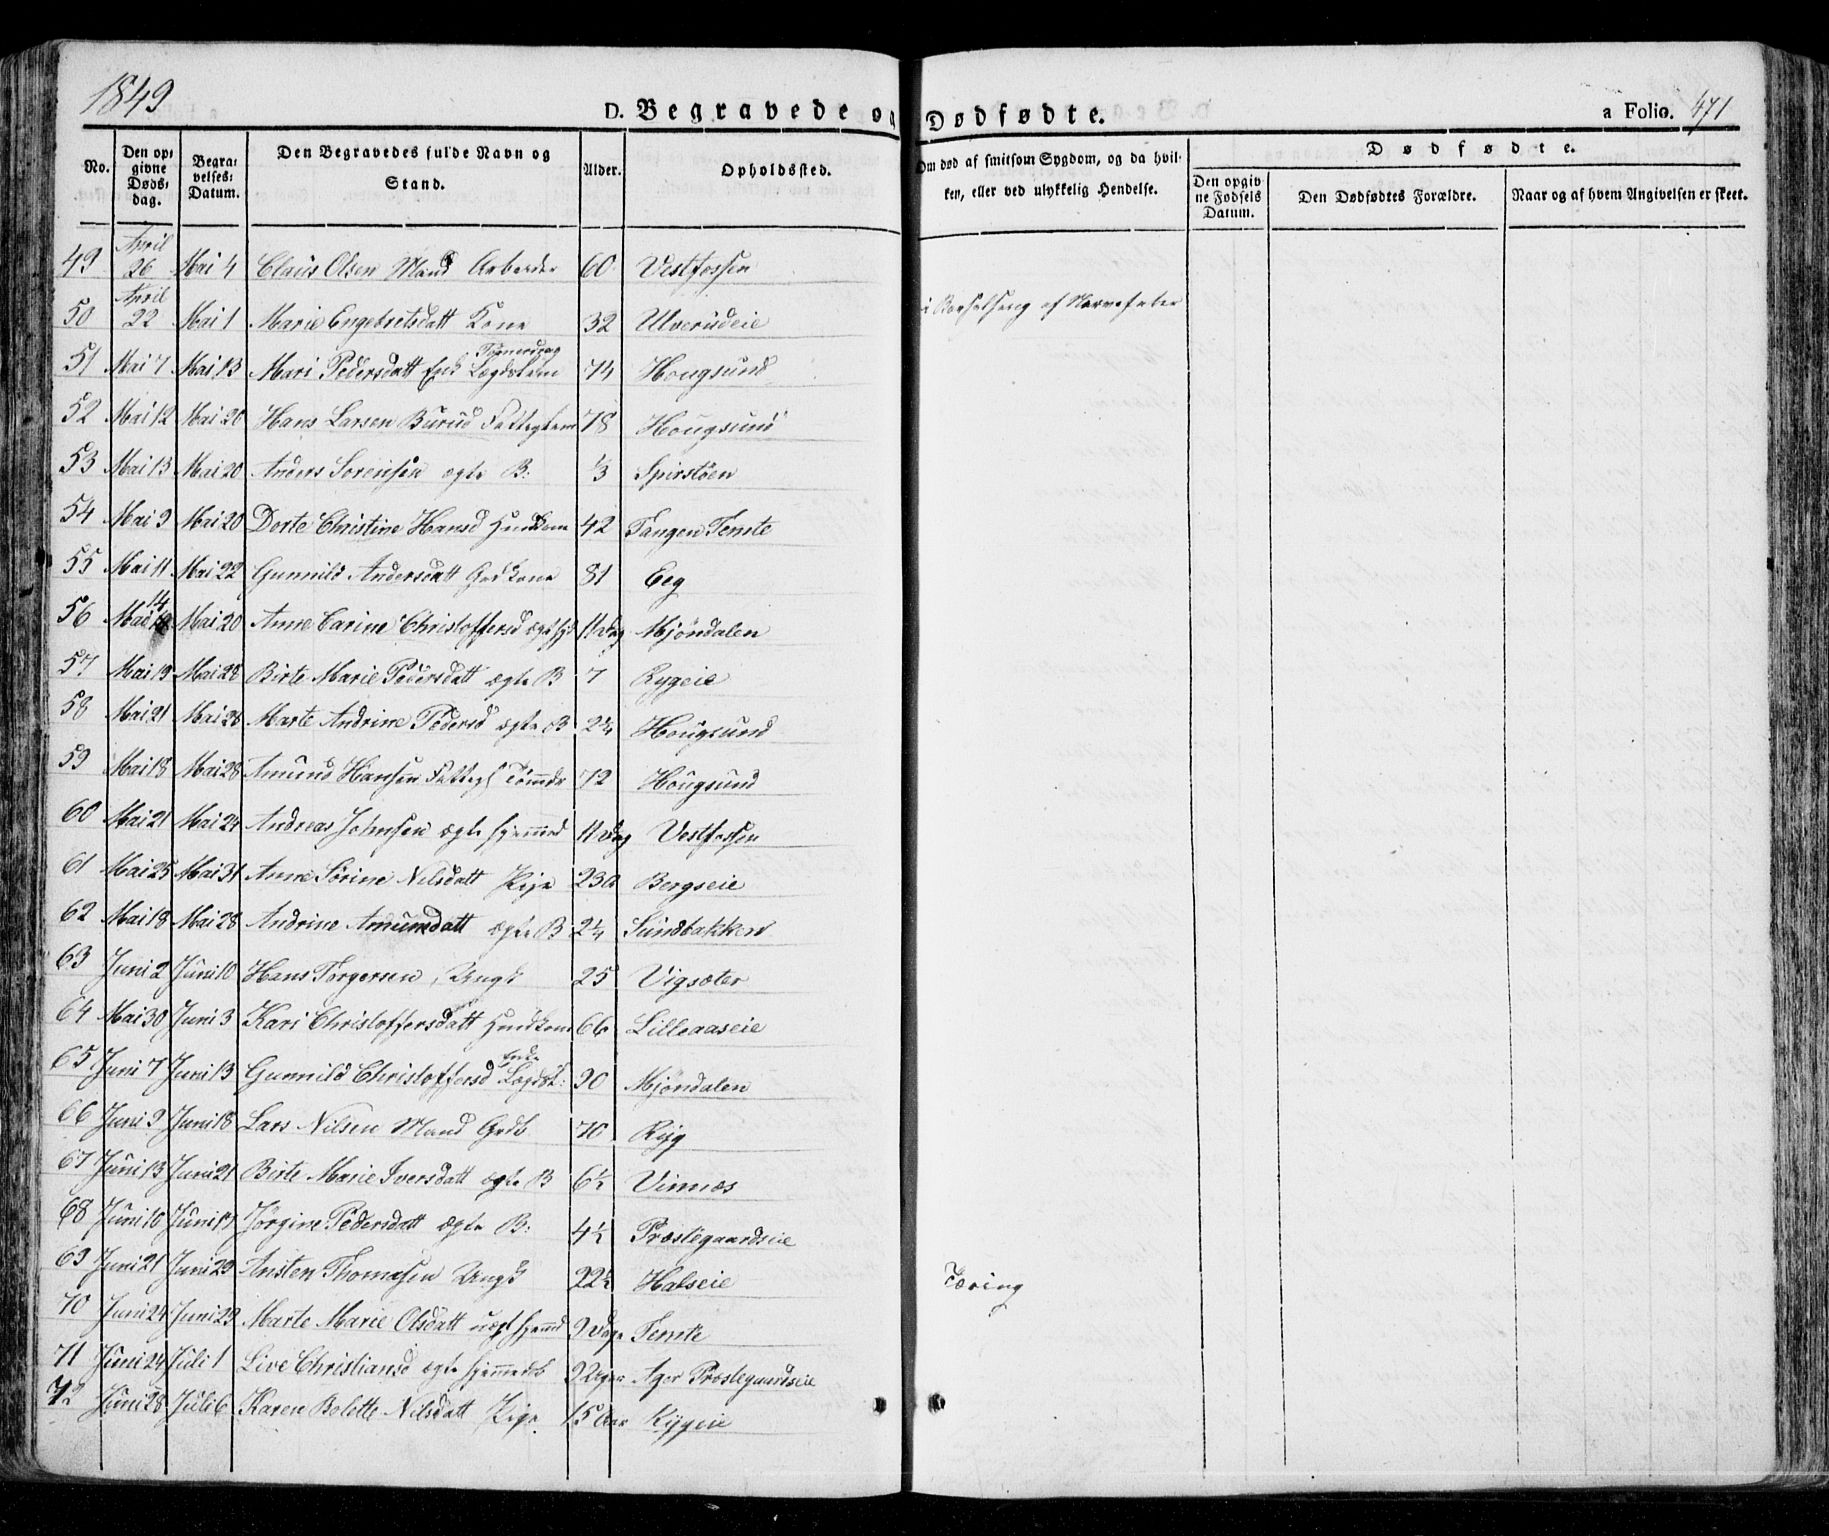 1849
D. Begravede og Dødfødte.
a Folio. 471
No.
Den opgivne Dødsdag.
Begravelses-Datum.
Den Begravedes fulde Navn og Stand.
Alder.
Opholdssted.
Om død af smitsom Sygdom, og da hvilken, eller ved ulykkelig Hendelse.
Dødfødte.
Den opgivne Fødsels Datum.
Den Dødfødtes Forældre.
Naar og af hvem Angivelsen er skeet.
49 April 26 Mai 4 Claus Olsen Mand Arbeider 60 Vestfossen
50 April 22 Mai 1 Marie Engebretsdatt Kone 32 Ulverudeie i Barselseng af Nervefeber
51 Mai 7 Mai 13 Mari Pedersdatt Enk Lægdslem 74 Hougsund
52 Mai 12 Mai 20 Hans Larsen Burud Fattiglem 78 Hougsund
53 Mai 13 Mai 20 Anders Sørensen ægte B: 1/3 Spirstøen
54 Mai 9 Mai 20 Dorte Christine Hansd Huuskone 42 Tangen Temte
55 Mai 11 Mai 22 Gunnild Andersdatt Grdkone 81 Eeg
56 Mai 14 Mai 20 Anne Carine Christoffersd ægt hjd 11 Dag Mjøndalen
57 Mai 19 Mai 28 Birte Marie Pedersdatt ægte B 7 Rygeie
58 Mai 21 Mai 28 Marte Andrine Pedersd ægte B 2 1/4 Hougsund
59 Mai 18 Mai 28 Amund Hansen Fattigl Tømmdr 72 Hougsund
60 Mai 21 Mai 24 Andreas Johnsen ægte hjemmed 11 Dag Vestfossen
61 Mai 25 Mai 31 Anne Sørine Nilsdatt Pige 23 Bergseie
62 Mai 18 Mai 28 Andrine Amunsdatt ægte B 2 1/4 Sundbakken
63 Juni 2 Juni 10 Hans Torgersen Ungk 25 Vigsæter
64 Mai 30 Juni 3 Kari Christoffersdatt Huuskone 66 Lilleaaseie
65 Juni 7 Juni 13 Gunnild Christoffersd Enke Lægdsl: 90 Mjøndalen
66 Juni 9 Juni 18 Lars Nilsen Mand Grdb 70 Ryg
67 Juni 13 Juni 21 Birte Marie Iversdatt ægte B 6 1/2 Vinnæs
68 Juni 10 Juni 17 Jørgine Pedersdatt ægte B: 4 1/2 Præstegaardseie
69 Juni 21 Juni 29 Ansten Thomesen Ungk 22 1/2 Halseie Tæring
70 Juni 24 Juni 29 Marte Marie Olsdatt uægt hjemd 9 Dage Temte
71 Juni 24 Juli 1 Live Christiansd ægte hjemmedb 9 Uger Ager Præstegaardseie
72 Juni 28 Juli 6 Karen Bolette Nilsdatt Pige 15 Aar Rygeie